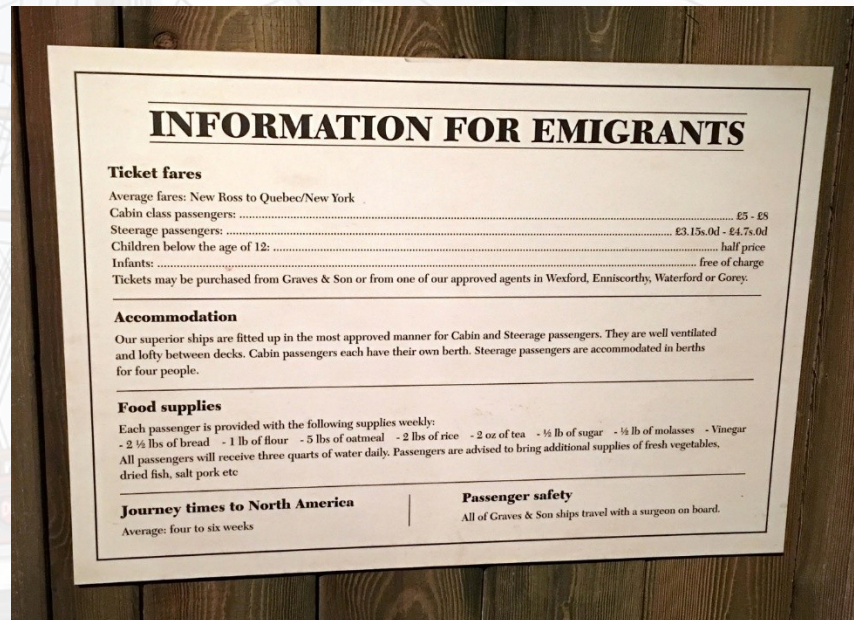 INFORMATION FOR EMIGRANTS
Ticket fares
Average fares: New Ross to Quebec/New York
Cabin class passengers: ........ £5 - £8
Steerage passengers: ........ £3.15s.0d - £4.7s.0d
Children below the age of 12: ........ half price
Infants: ........ free of charge
Tickets may be purchased from Graves & Son or from one of our approved agents in Wexford, Enniscorthy, Waterford or Gorey.
Accommodation
Our superior ships are fitted up in the most approved manner for Cabin and Steerage passengers. They are well ventilated
and lofty between decks. Cabin passengers each have their own berth. Steerage passengers are accommodated in berths
for four people.
Food supplies
Each passenger is provided with the following supplies weekly:
- 2 ½ lbs of bread - 1 lb of flour - 5 lbs of oatmeal - 2 lbs of rice - 2 oz of tea - ½ lb of sugar - ½ lb of molasses - Vinegar
All passengers will receive three quarts of water daily. Passengers are advised to bring additional supplies of fresh vegetables,
dried fish, salt pork etc
Journey times to North America
Average: four to six weeks
Passenger safety
All of Graves & Son ships travel with a surgeon on board.